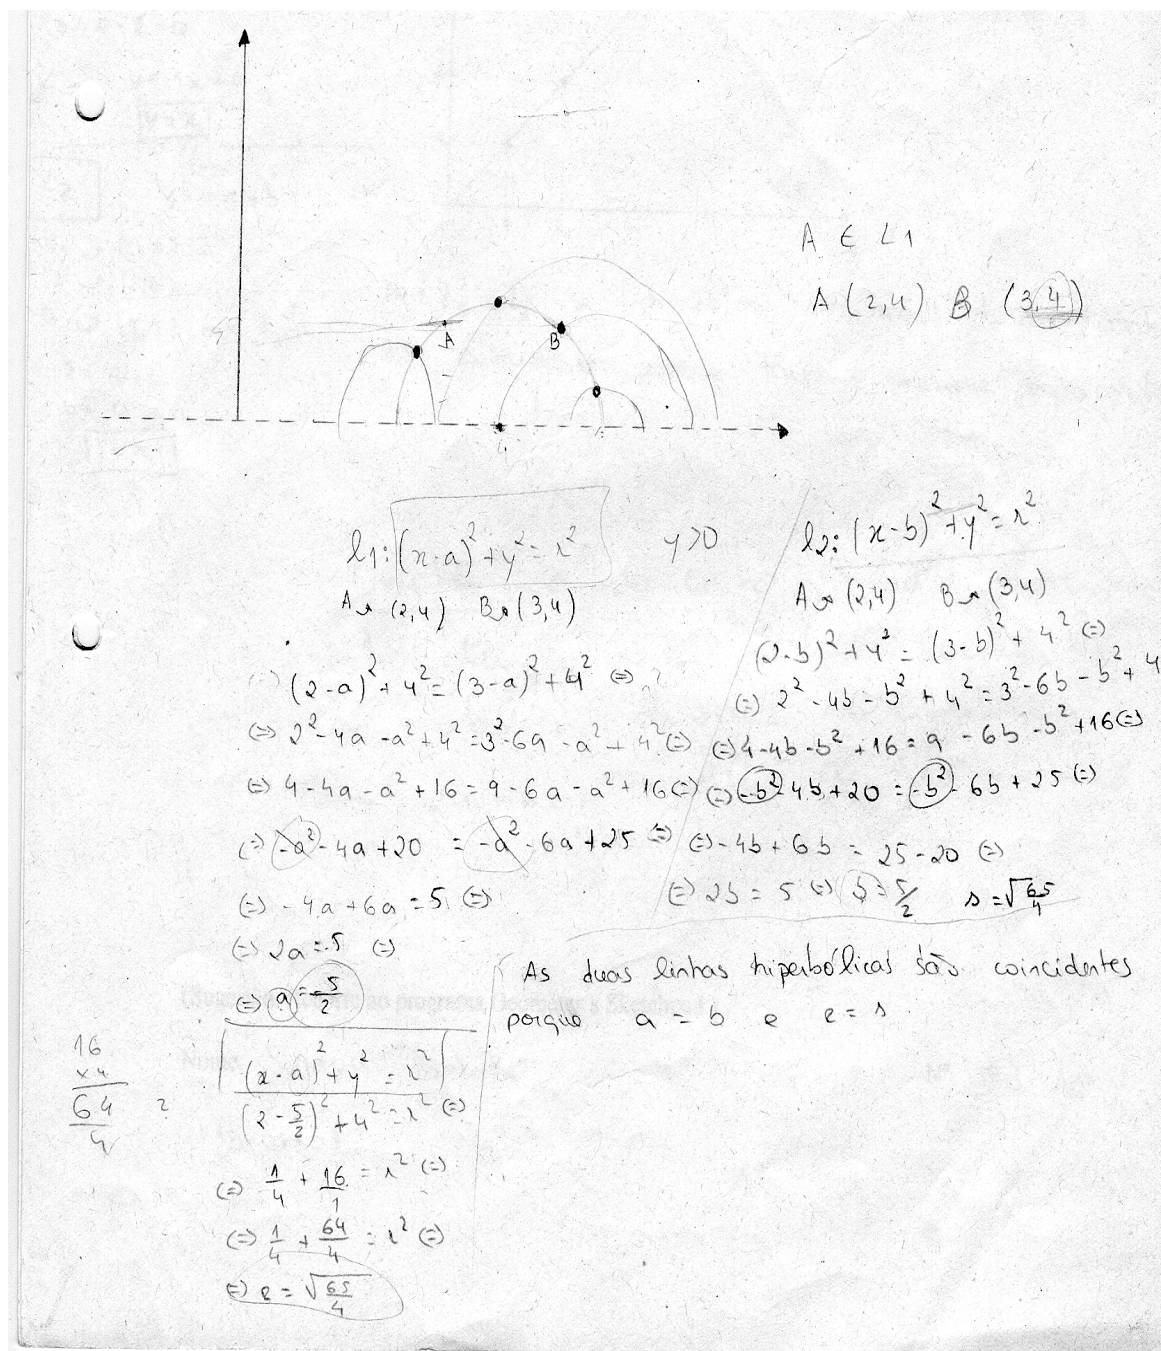 A ∈ L1
A (2,4) B (3,4)
A
B
l1: (x-a)² + y² = r² y>0
A ↝ (2,4) B ↝ (3,4)
(2-a)² + 4² = (3-a)² + 4² (=)
(=) 2² - 4a - a² + 4² = 3² - 6a - a² + 4² (=)
(=) 4 - 4a - a² + 16 = 9 - 6a - a² + 16 (=)
(=) -a² - 4a + 20 = -a² - 6a + 25 (=)
(=) -4a + 6a = 5 (=)
(=) 2a = 5 (=)
(=) a = 5/2
(x-a)² + y² = r²
(2 - 5/2)² + 4² = r² (=)
(=) 1/4 + 16/1 = r² (=)
(=) 1/4 + 64/4 = r² (=)
(=) r = √65/4
16
x 4
64
4
?
l2: (x-b)² + y² = r²
A ↝ (2,4) B ↝ (3,4)
(2-b)² + 4² = (3-b)² + 4² (=)
(=) 2² - 4b - b² + 4² = 3² - 6b - b² + 4
(=) 4 - 4b - b² + 16 = 9 - 6b - b² + 16 (=)
(=) -b² - 4b + 20 = -b² - 6b + 25 (=)
(=) -4b + 6b = 25 - 20 (=)
(=) 2b = 5 (=) b = 5/2 s = √65/4
As duas linhas hiperbólicas são coincidentes
porque a = b e r = s